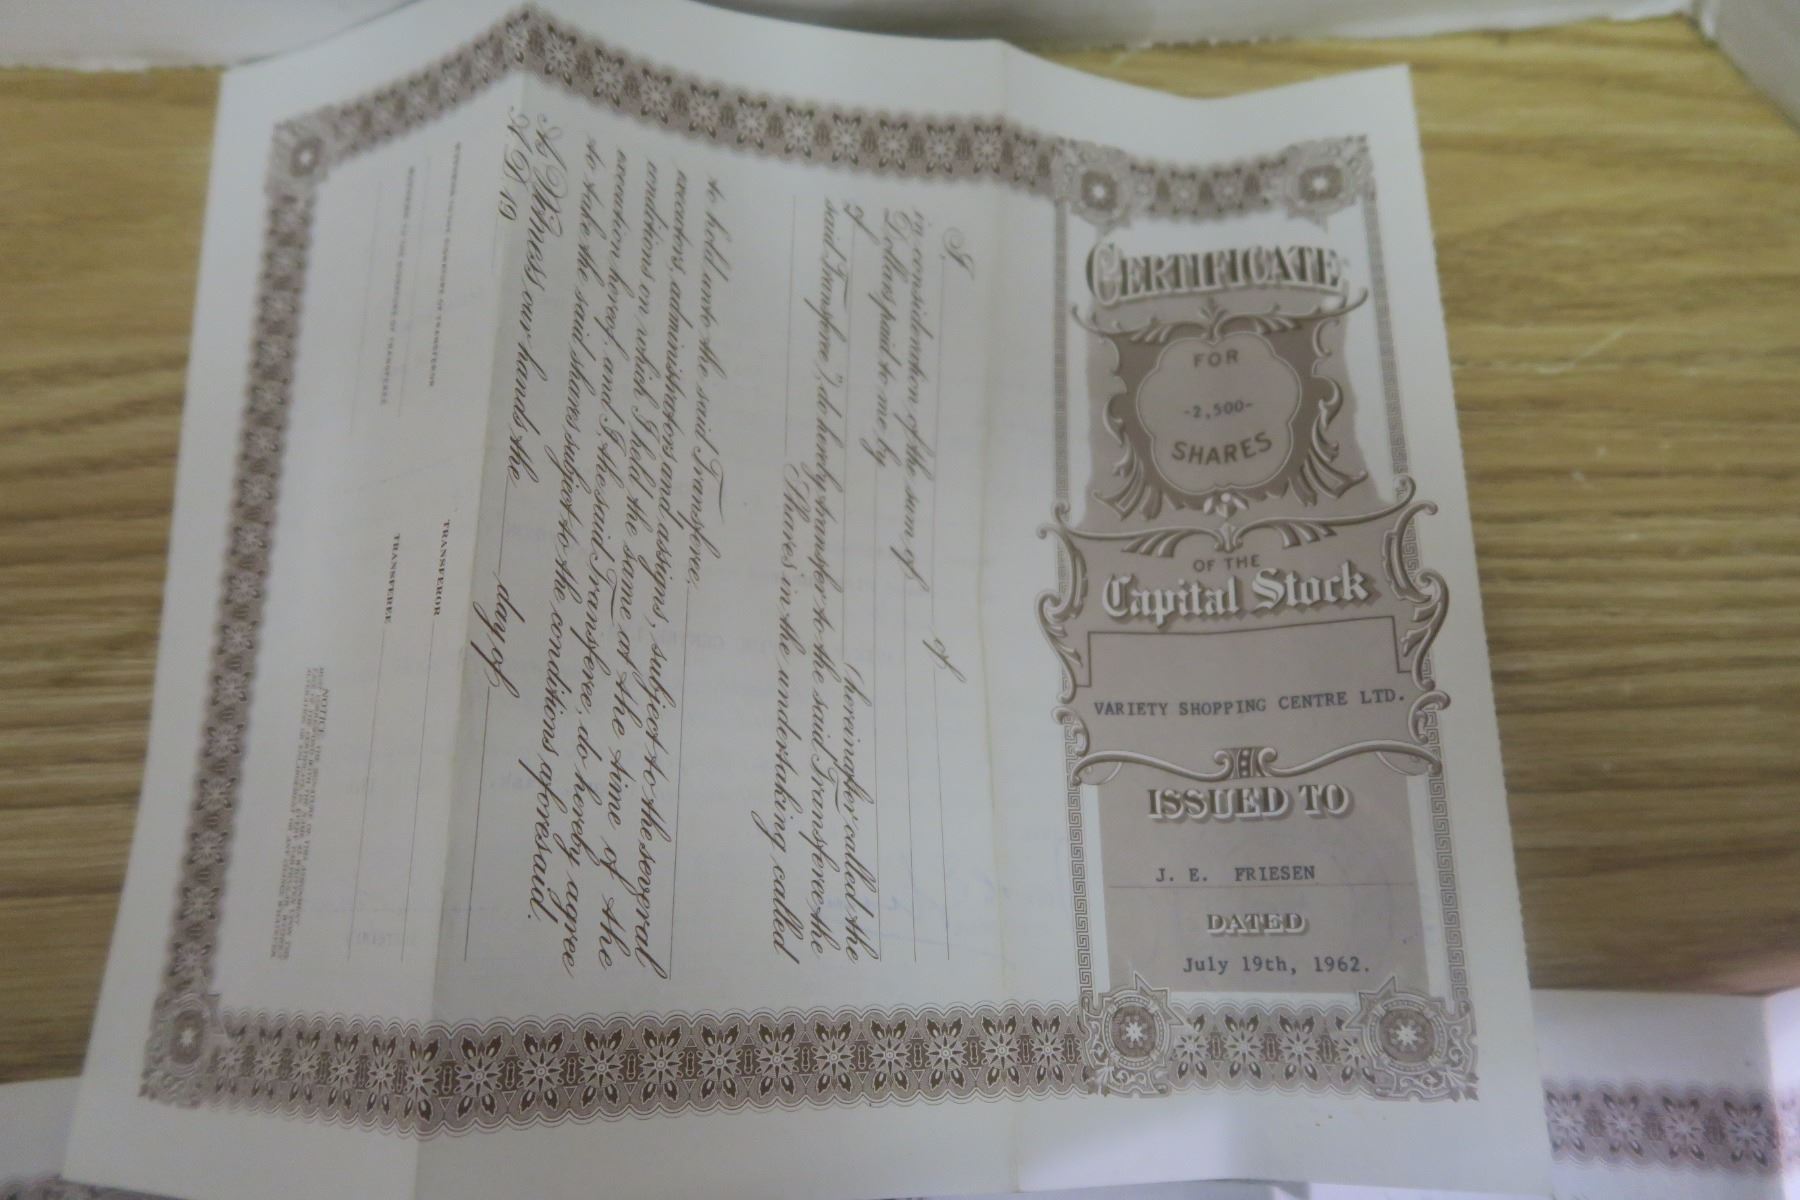 CERTIFICATE
FOR
-2,500-
SHARES
OF THE
Capital Stock
VARIETY SHOPPING CENTRE LTD.
ISSUED TO
J. E. FRIESEN
DATED
July 19th, 1962.
I, of
in consideration of the sum of
Dollars paid to me by
of (hereinafter called the
said Transferee), do hereby transfer to the said Transferee the
Shares in the undertaking called
to hold unto the said Transferee,
executors, administrators and assigns, subject to the several
conditions on which I hold the same at the time of the
execution hereof, and I, the said Transferee, do hereby agree
to take the said shares subject to the conditions aforesaid.
As Witness our hands the day of
A.D. 19
TRANSFEROR
TRANSFEREE